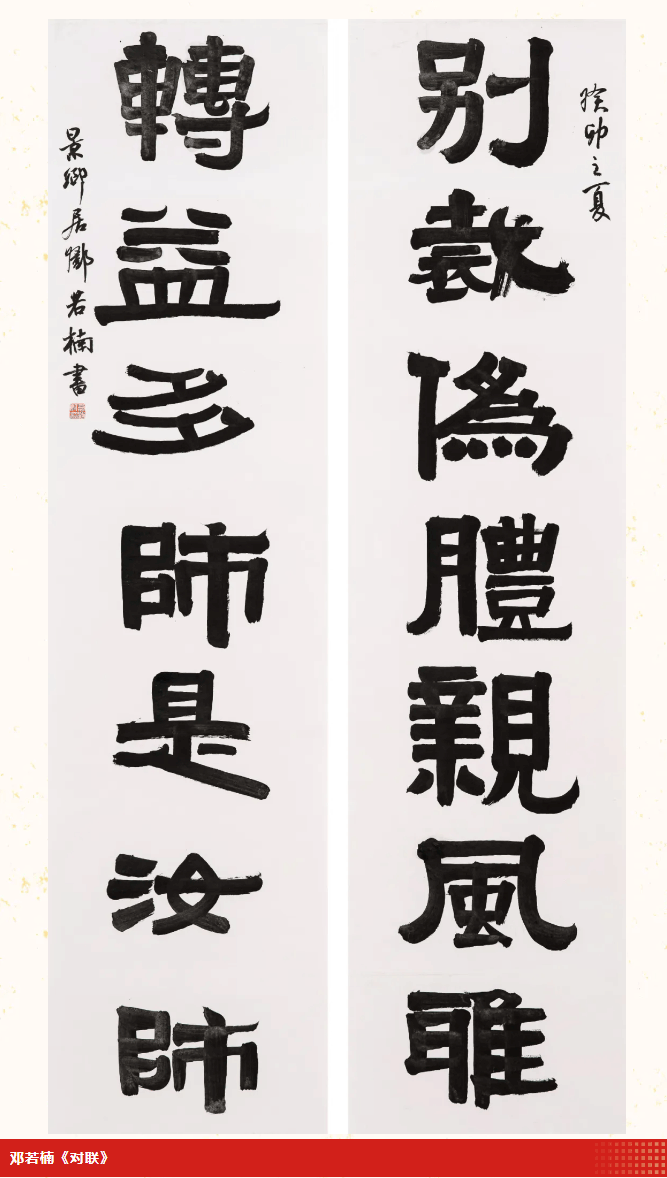 癸卯之夏
别裁偽體親風雅
轉益多師是汝師
景鄉居鄧若楠書
邓若楠《对联》